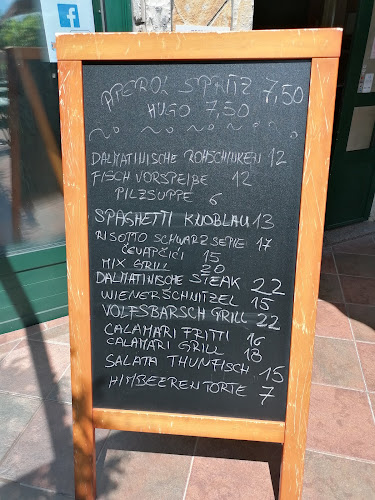 APEROL SPRITZ 7,50
HUGO 7,50
DALMATINISCHE ROHSCHINKEN 12
FISCH VORSPEIBE 12
PILZSUPPE 6
SPAGHETTI KNOBLAU 13
RISOTTO SCHWARZSEPIE 17
ĆEVAPČIĆI 15
MIX GRILL 20
DALMATINISCHE STEAK 22
WIENERSCHNITZEL 15
VOLFSBARSCH GRILL 22
CALAMARI FRITTI 16
CALAMARI GRILL 18
SALATA THUNFISCH 15
HIMBEERENTORTE 7